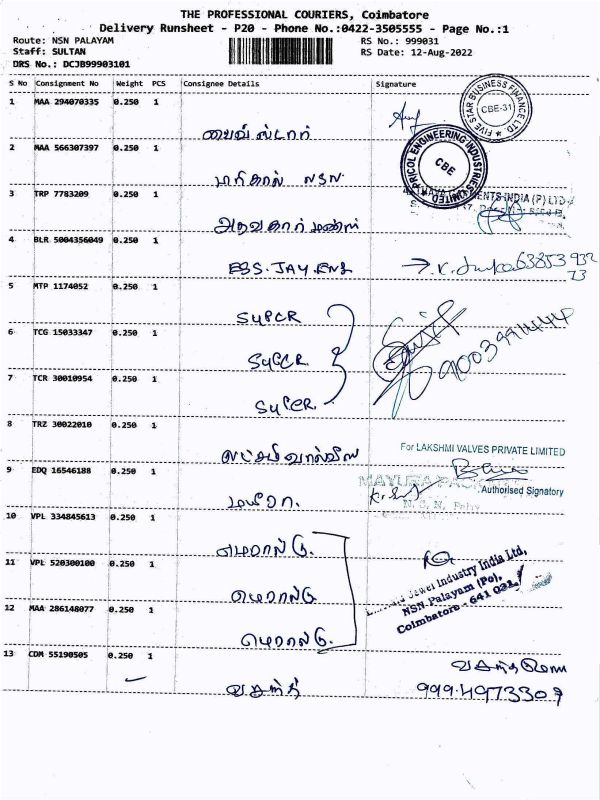 THE PROFESSIONAL COURIERS, Coimbatore
Delivery Runsheet - P20 - Phone No.:0422-3505555 - Page No.:1
Route: NSN PALAYAM RS No.: 999031
Staff: SULTAN RS Date: 12-Aug-2022
DRS No.: DCJB99903101
S No Consignment No Weight PCS Consignee Details Signature
1 MAA 294070335 0.250 1
FIVE STAR BUSINESS FINANCE LTD. CBE-31
ஃபைவ் ஸ்டார்
2 MAA 566307397 0.250 1
PRICOL ENGINEERING INDUSTRIES LIMITED CBE
3 TRP 7783209 0.250 1
ENTS INDIA (P) LTD
4 BLR 5004356049 0.250 1
EBS. JAY ENG
5 MTP 1174052 0.250 1
SUPER
6 TCG 15033347 0.250 1
SUPER
9003991444
7 TCR 30010954 0.250 1
SUPER
8 TRZ 30022010 0.250 1
லட்சுமி வால்வ்ஸ்
For LAKSHMI VALVES PRIVATE LIMITED
9 EDQ 16546188 0.250 1
Authorised Signatory
மயூரா.
10 VPL 334845613 0.250 1
எமரால்டு.
11 VPL 520300100 0.250 1
Jewel Industry India Ltd,
NSN-Palayam (Po),
Coimbatore - 641 031.
எமரால்டு
12 MAA 286148077 0.250 1
எமரால்டு.
13 CDM 55190505 0.250 1
வசந்த் 9994973309